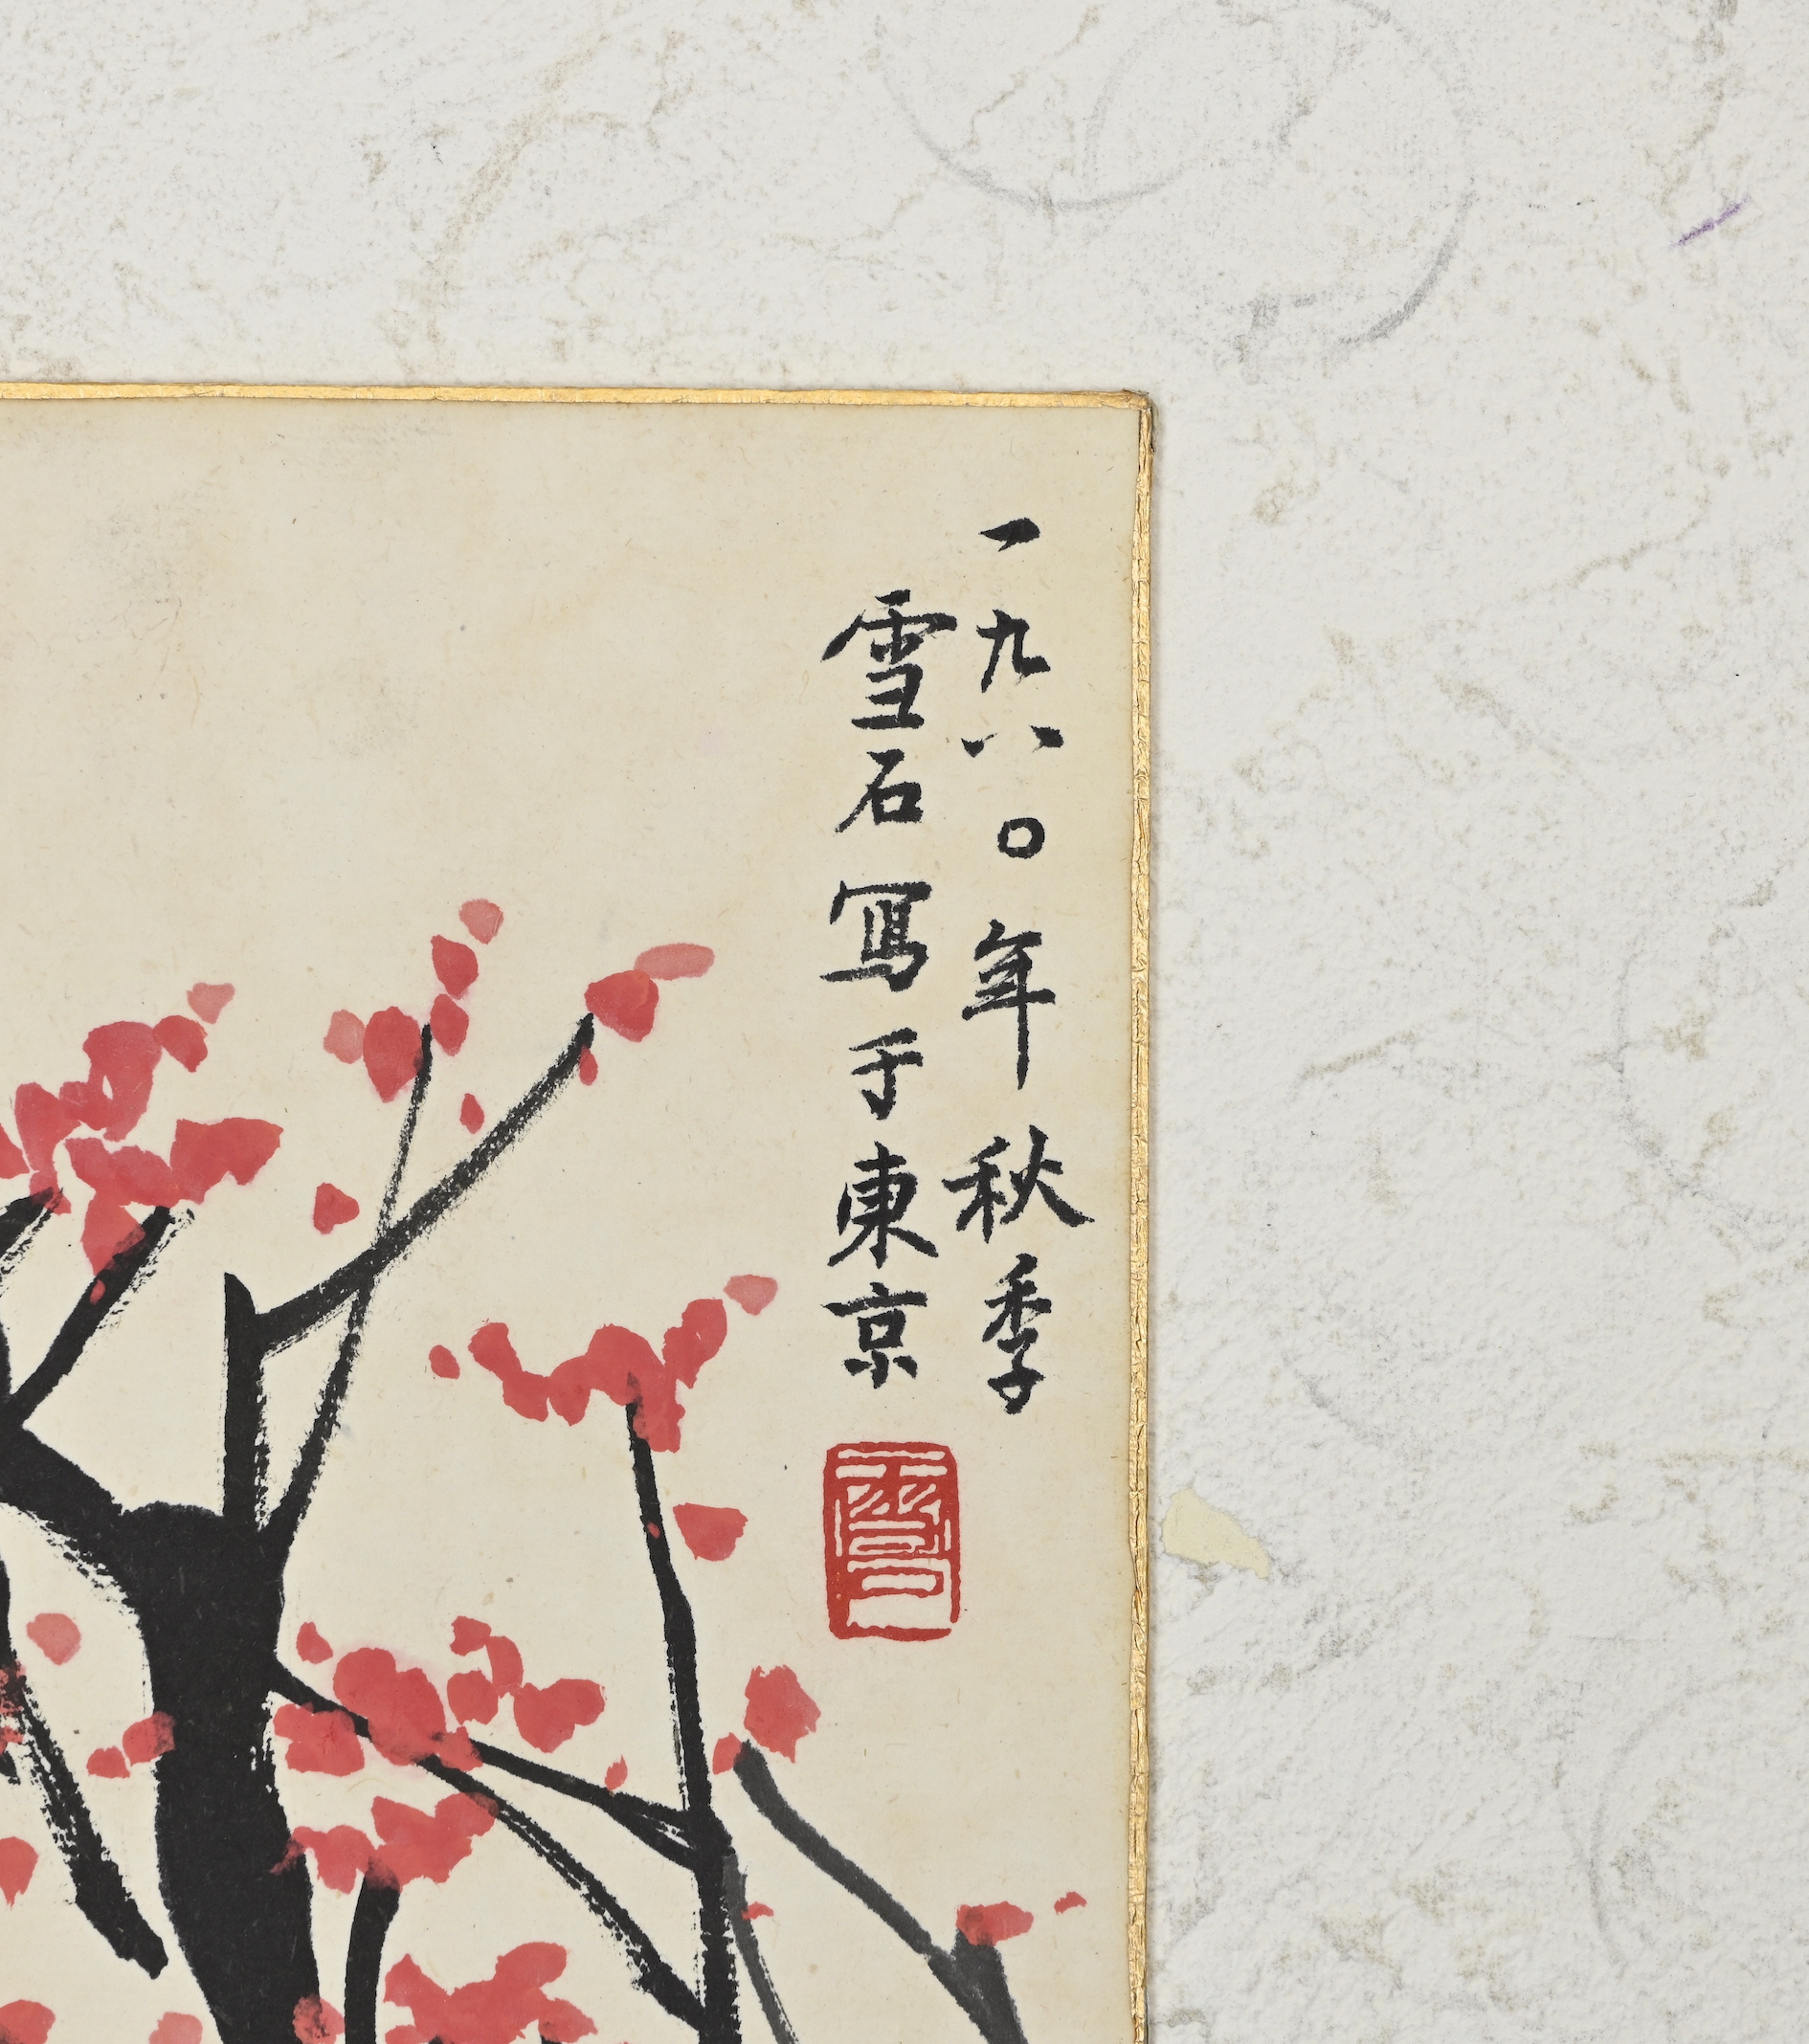 一九八〇年秋季
雪石寫于東京